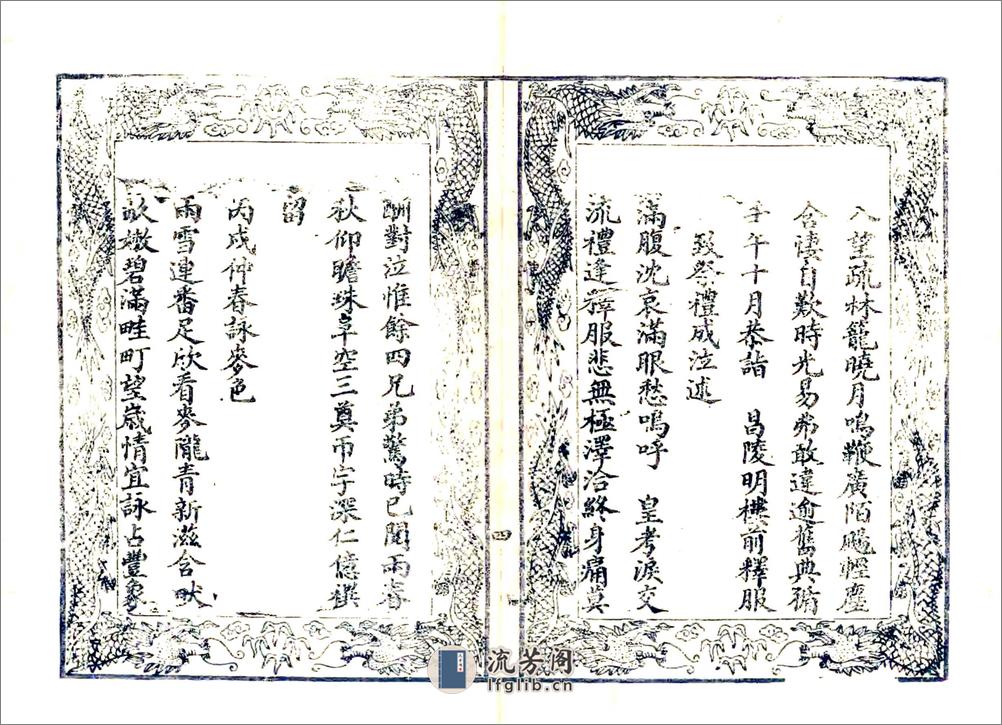 入望疏林籠曉月鳴鞭廣陌颺輕塵
含悽自歎時光易弗敢違逾舊典循
壬午十月恭詣　昌陵明樓前釋服
致祭禮成泣述
滿腹沈哀滿眼愁嗚呼　皇考淚交
流禮逢釋服悲無極澤洽終身痛莫
四
酬對泣惟餘四兄弟驚時已閱兩春
秋仰瞻珠阜空三奠帀宇深仁億禩
留
丙戌仲春詠麥色
雨雪連番足欣看麥隴青新滋含畎
畝嫩碧滿畦町望歲情宜詠占豐象
流芳阁
lfglib.cn